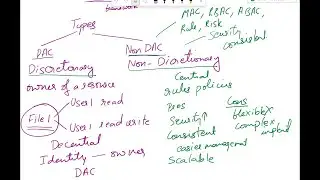 framework
Types
MAC, RBAC, ABAC,
Rule, Risk
DAC
Non DAC
Security
consistent.
Discretionary
Non-Discretionary
owner of a resource
Central
rules policies
File 1
User 1 read
User 1 read write
Pros
Security ↑
Consistent
easier management
Scalable
Cons
flexible X
complex
Decentral
Identity — owner
DAC